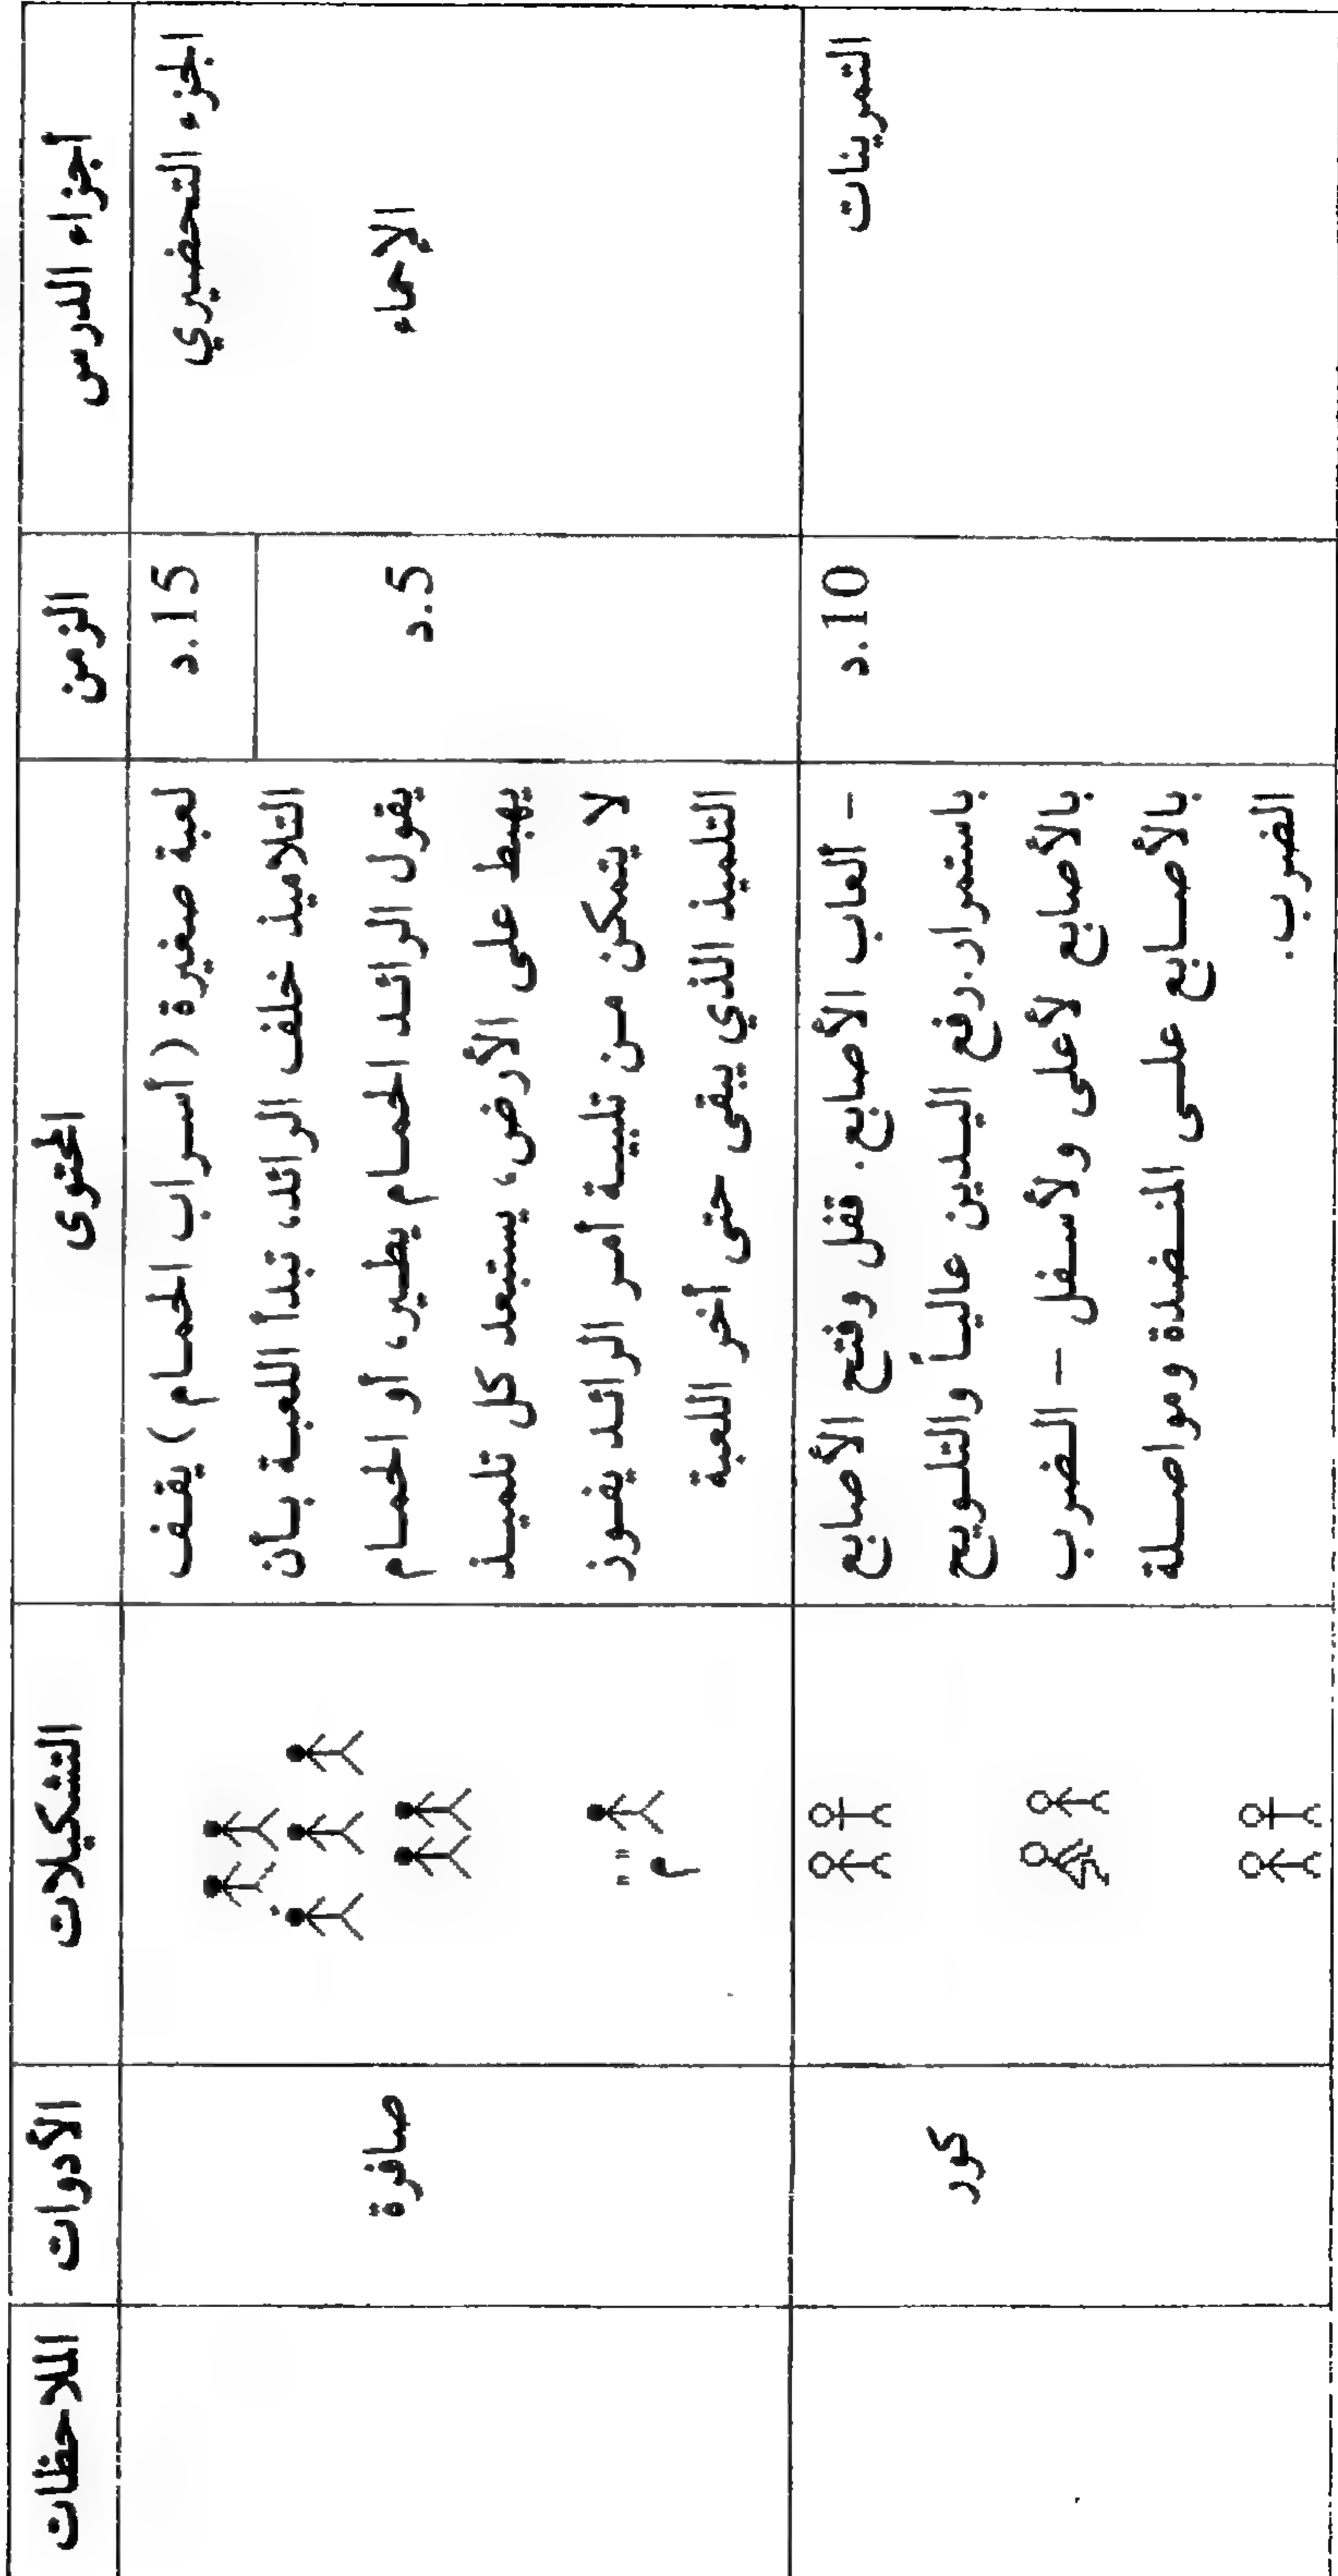 أجزاء الدرس
الزمن
المحتوى
التشكيلات
الأدوات
الملاحظات
الجزء التحضيري
15.د
الإحماء
5.د
لعبة صغيرة (أسراب الحمام) يقف
التلاميذ خلف الرائد، تبدأ اللعبة بأن
يقول الرائد الحمام يطير، أو الحمام
يهبط على الأرض، يستبعد كل تلميذ
لا يتمكن من تلبية أمر الرائد يفوز
التلميذ الذي يبقى حتى أخر اللعبة
" "
م
صافرة
التمرينات
10.د
- ألعاب الأصابع. قفل وفتح الأصابع
باستمرار.رفع اليدين عالياً والتلويح
بالأصابع لأعلى ولأسفل – الضرب
بالأصابع على المنضدة ومواصلة
الضرب.
كور